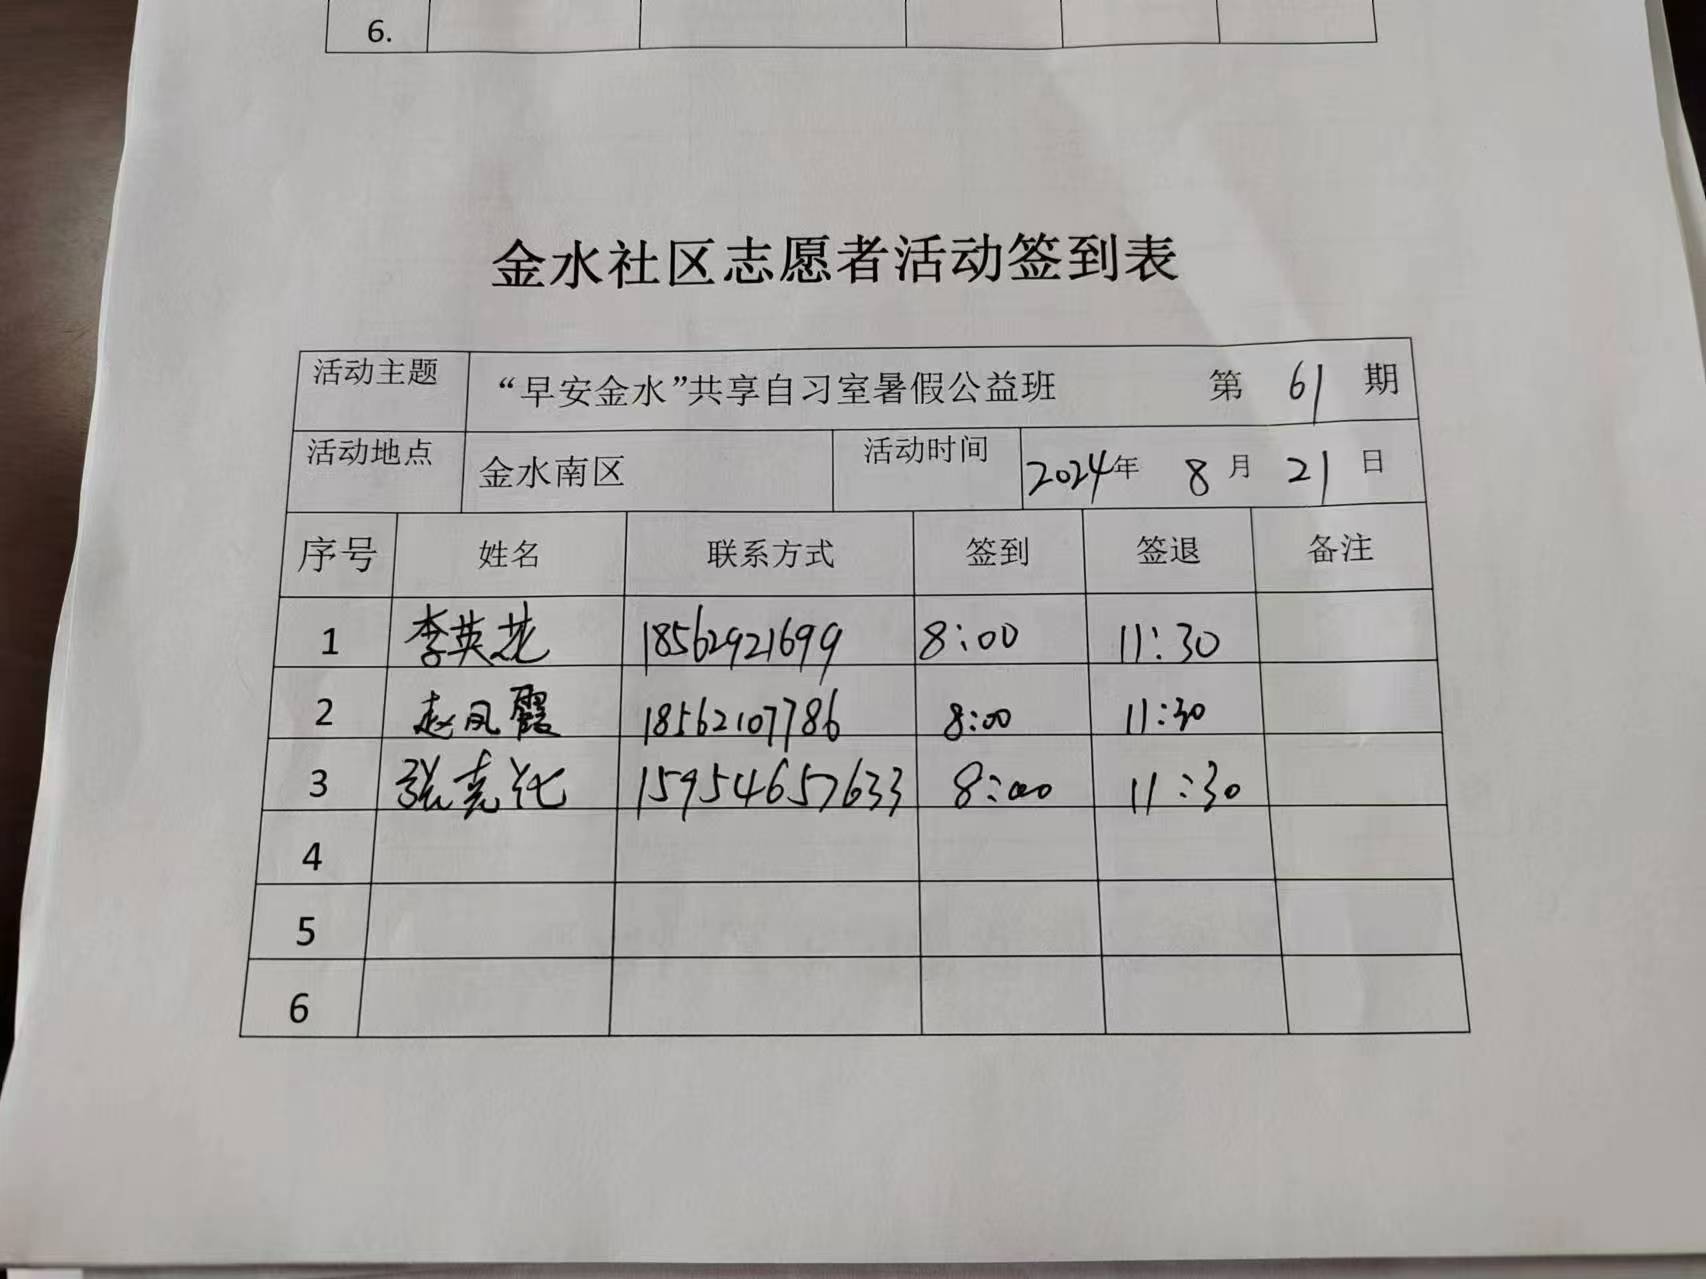 6.
金水社区志愿者活动签到表
活动主题 “早安金水”共享自习室暑假公益班 第 61 期
活动地点 金水南区 活动时间 2024年 8月 21日
序号 姓名 联系方式 签到 签退 备注
1 李英花 18562921699 8:00 11:30
2 赵凤霞 18562107786 8:00 11:30
3 张克化 15954657633 8:00 11:30
4
5
6